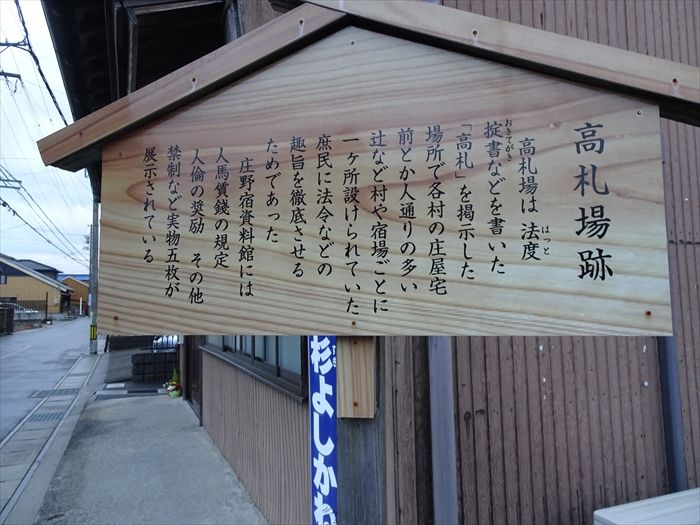 高札場跡
高札場は 法度
はっと
掟書などを書いた
おきてがき
「高札」を掲示した
場所で各村の庄屋宅
前とか人通りの多い
辻など村や宿場ごとに
一ヶ所設けられていた
庶民に法令などの
趣旨を徹底させる
ためであった
庄野宿資料館には
人馬賃錢の規定
人倫の奨励 その他
禁制など実物五枚が
展示されている
杉よしかね